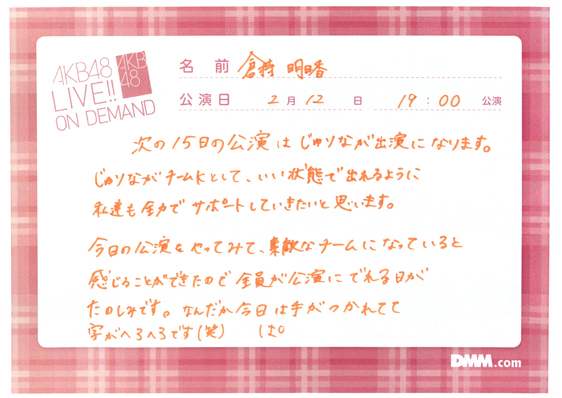 AKB48
LIVE!!
ON DEMAND
AKB
48
名 前 倉持 明日香
公演日 2月 12 日 19:00 公演
次の15日の公演はじゅりなが出演になります。
じゅりながチームKとして、いい状態で出れるように
私達も全力でサポートしていきたいと思います。
今日の公演をやってみて、素敵なチームになっていると
感じることができたので全員が公演にでれる日が
たのしみです。なんだか今日は手がつかれてて
字がへろへろです(笑)
DMM.com